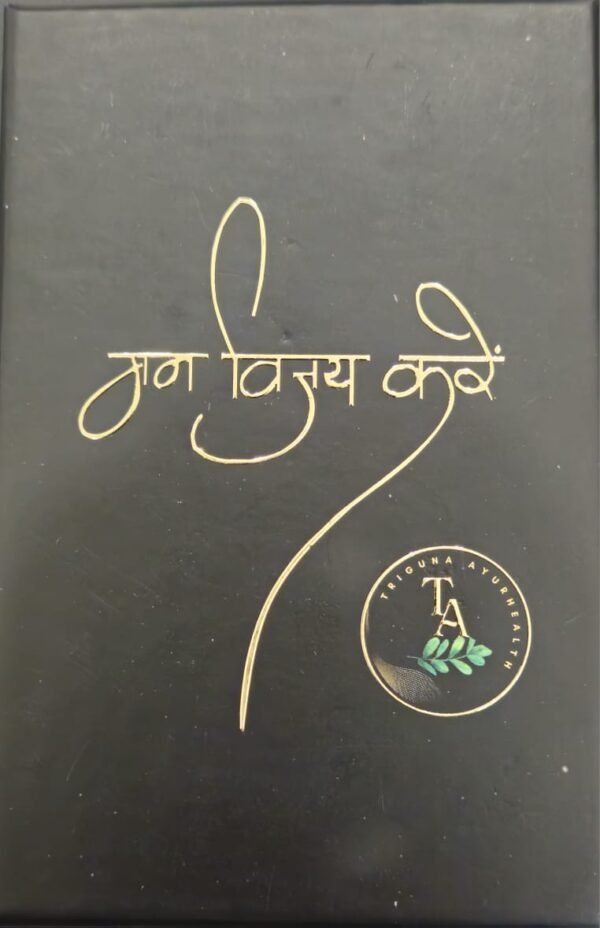 मन विजय करें
TRIGUNA AYURHEALTH
TA